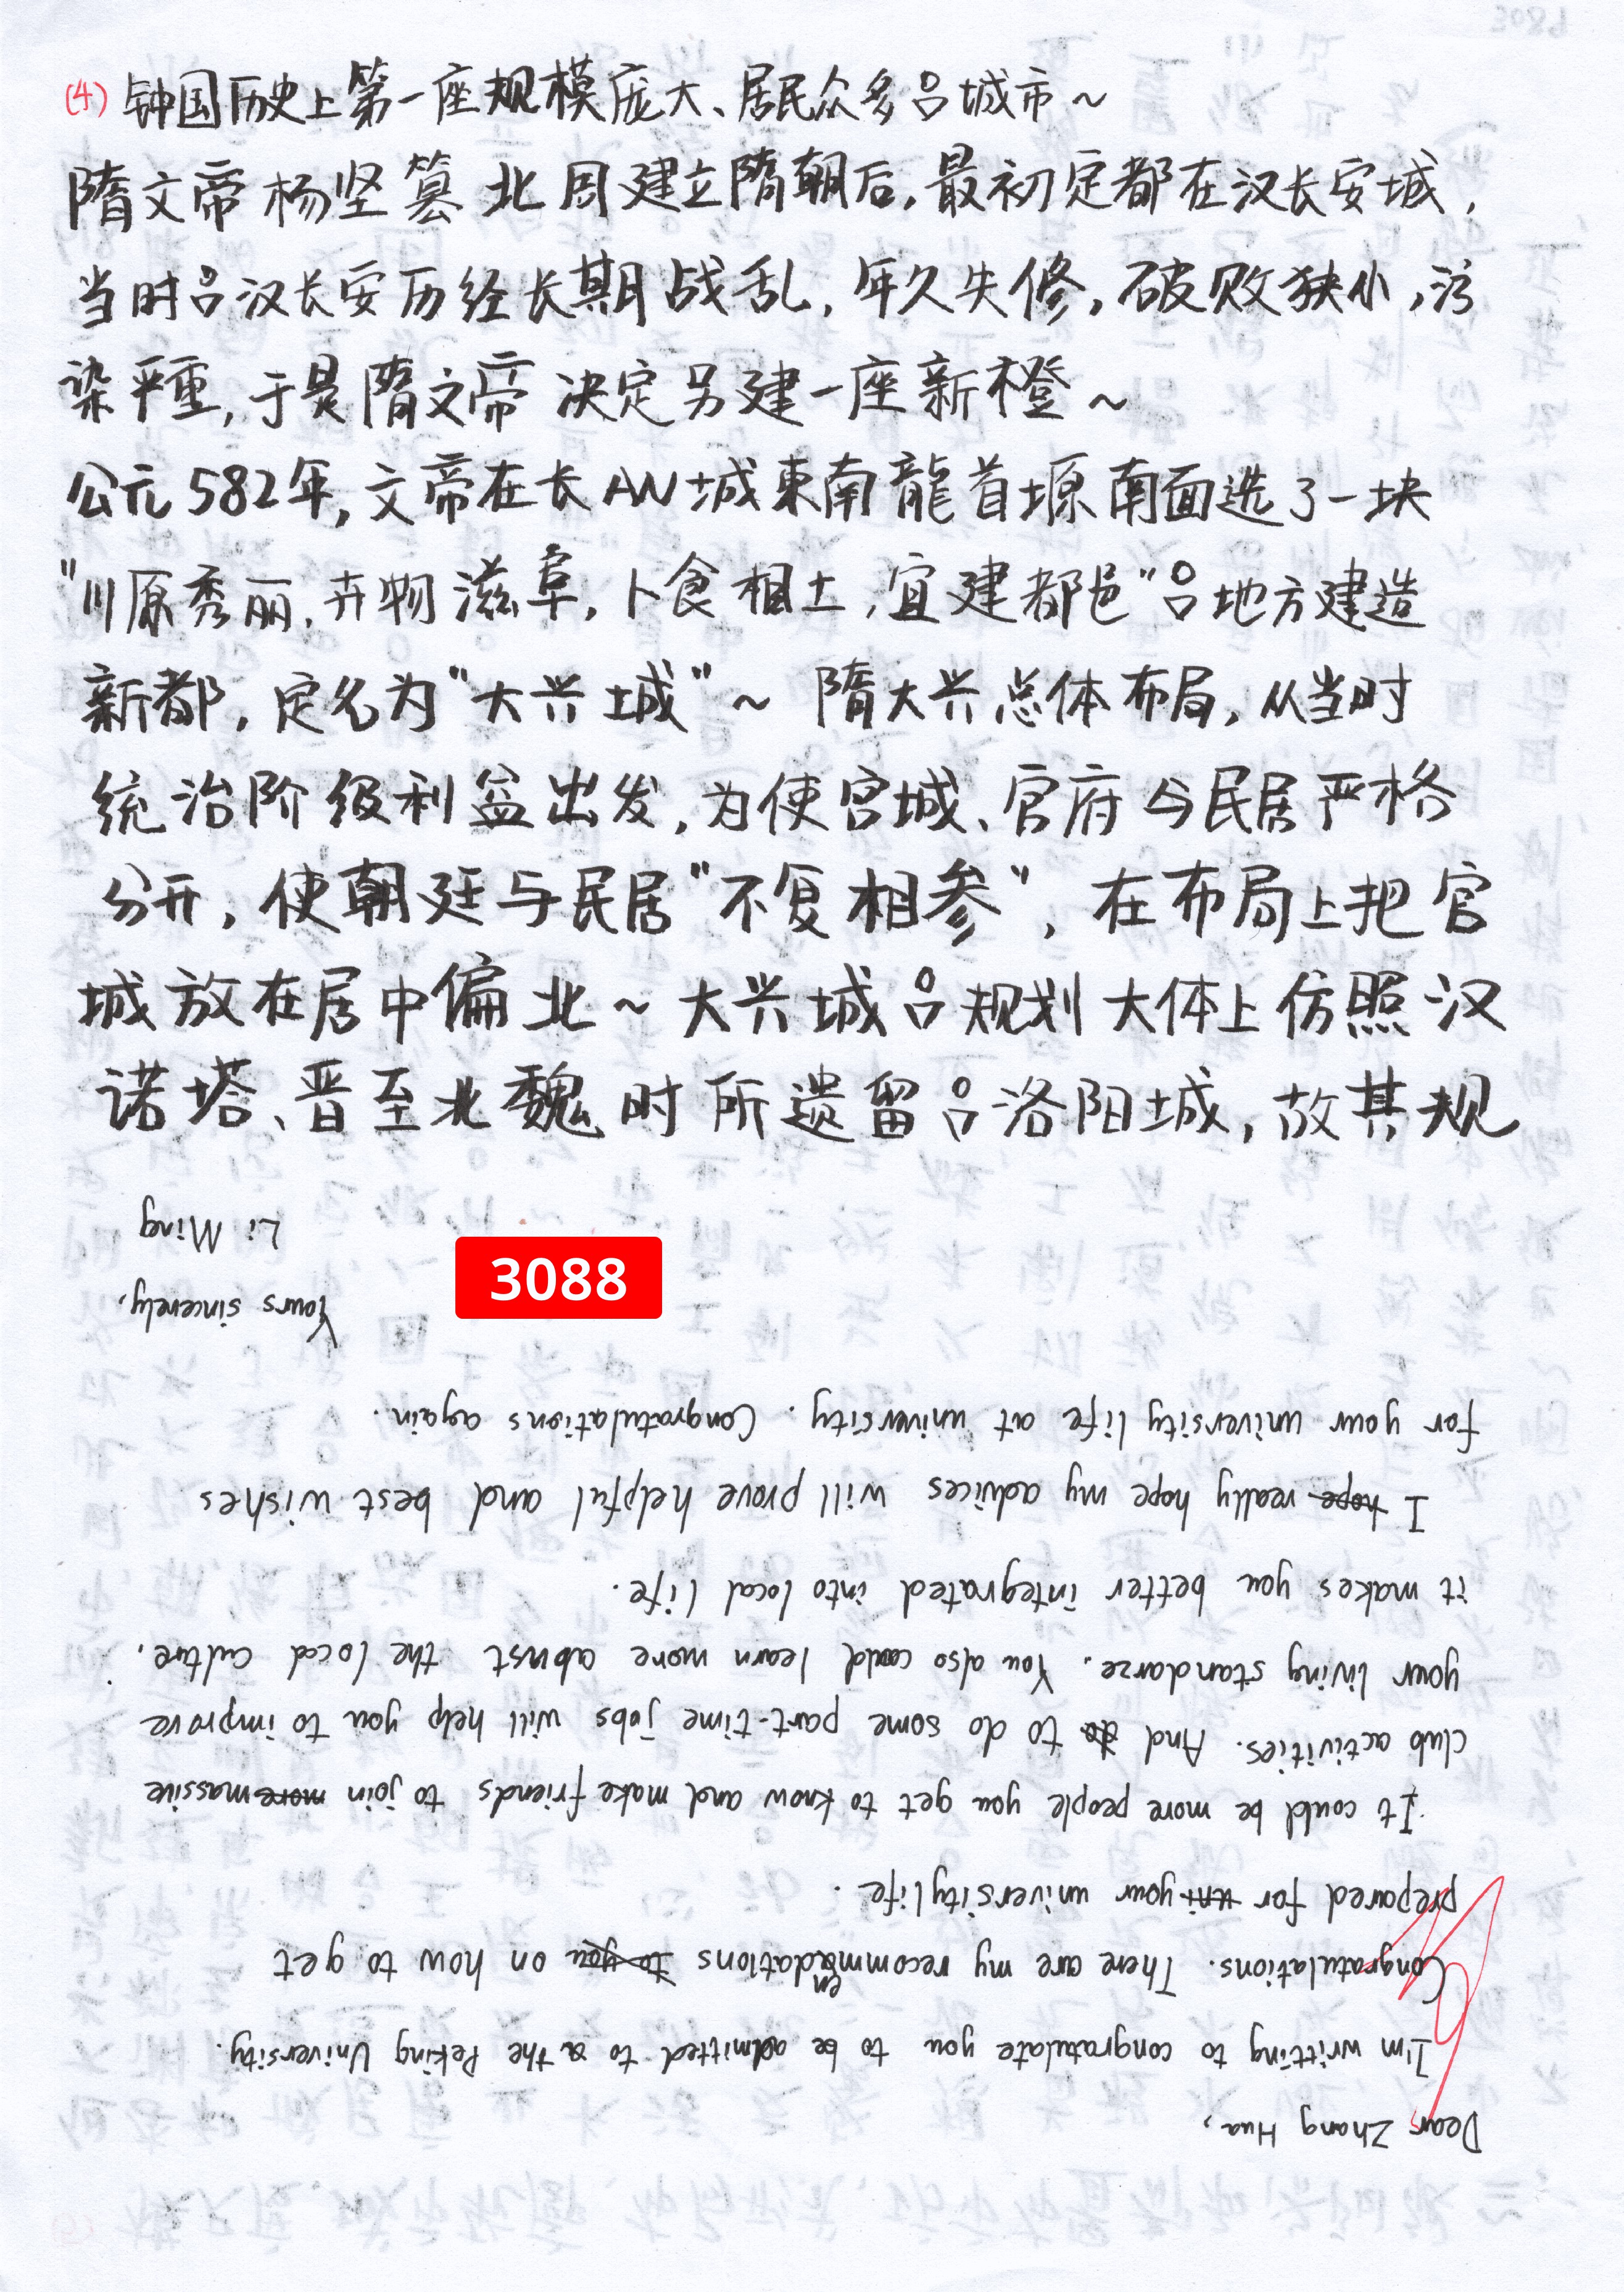 (4) 钟国历史上第一座规模庞大、居民众多吕城市~
隋文帝杨坚篡北周建立隋朝后,最初定都在汉长安城,
当时吕汉长安历经长期战乱,年久失修,破败狭小,污
染严重,于是隋文帝决定另建一座新橙~
公元582年,文帝在长AN城東南龍首塬南面选了一块
"川原秀丽,卉物滋阜,卜食相土,宜建都邑"吕地方建造
新都,定名为"大兴城"~ 隋大兴总体布局,从当时
统治阶级利益出发,为使宫城、官府与民居严格
分开,使朝廷与民居"不复相参",在布局上把官
城放在居中偏北~大兴城吕规划大体上仿照汉
诺塔、晋至北魏时所遗留吕洛阳城,故其规
3088
Dear Zhang Hua,
I'm writting to congratulate you to be admitted to the Peking University.
Congratulations. There are my recommendations on how to get
prepared for your university life.
It could be more people you get to know and make friends to join massive
club activities. And to do some part-time jobs will help you to improve
your living standarze. You also could learn more abonst the local culture,
it makes you better integrated into local life.
I really hope my advices will prove helpful and best wishes
for your university life at university. Congratulations again.
Yours sincerely,
Li Ming